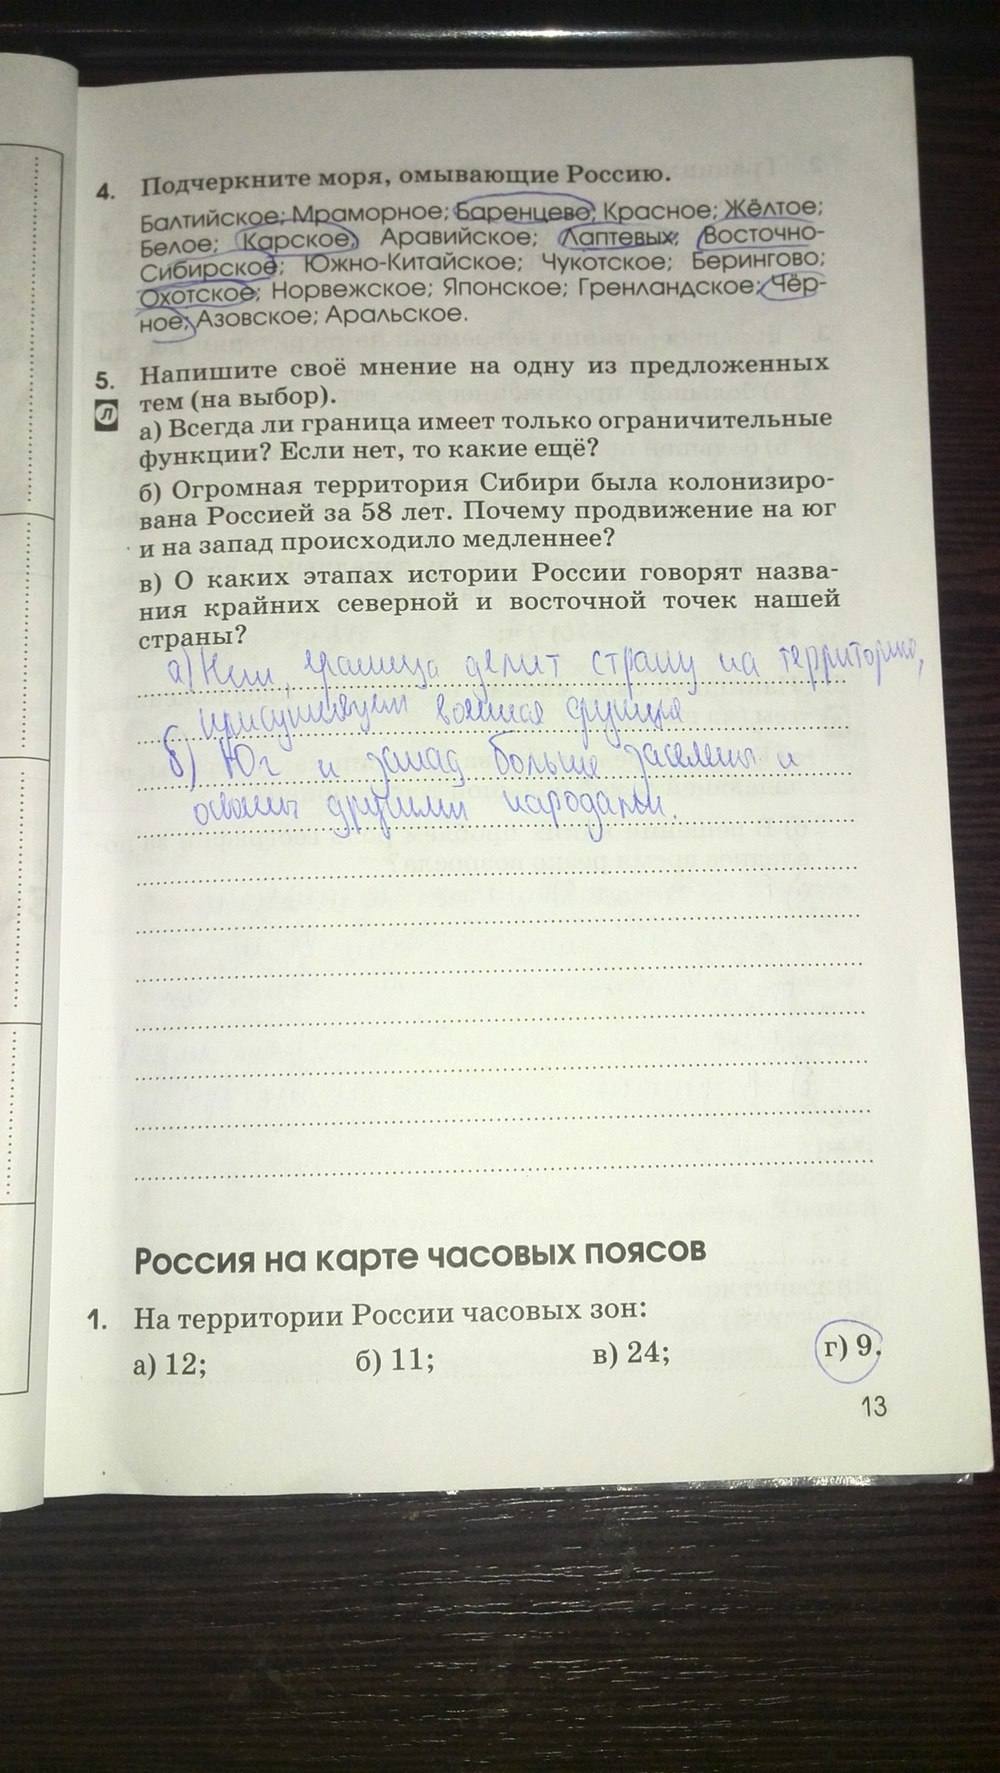 4. Подчеркните моря, омывающие Россию.
Балтийское; Мраморное; Баренцево; Красное; Жёлтое;
Белое; Карское; Аравийское; Лаптевых; Восточно-
Сибирское; Южно-Китайское; Чукотское; Берингово;
Охотское; Норвежское; Японское; Гренландское; Чёр-
ное; Азовское; Аральское.
5. Напишите своё мнение на одну из предложенных
Л тем (на выбор).
а) Всегда ли граница имеет только ограничительные
функции? Если нет, то какие ещё?
б) Огромная территория Сибири была колонизиро-
вана Россией за 58 лет. Почему продвижение на юг
и на запад происходило медленнее?
в) О каких этапах истории России говорят назва-
ния крайних северной и восточной точек нашей
страны?
а) Нет, граница делит страну на территории,
военная
б) Юг и запад больше заселены и
другими народами.
Россия на карте часовых поясов
1. На территории России часовых зон:
а) 12; б) 11; в) 24; г) 9.
13